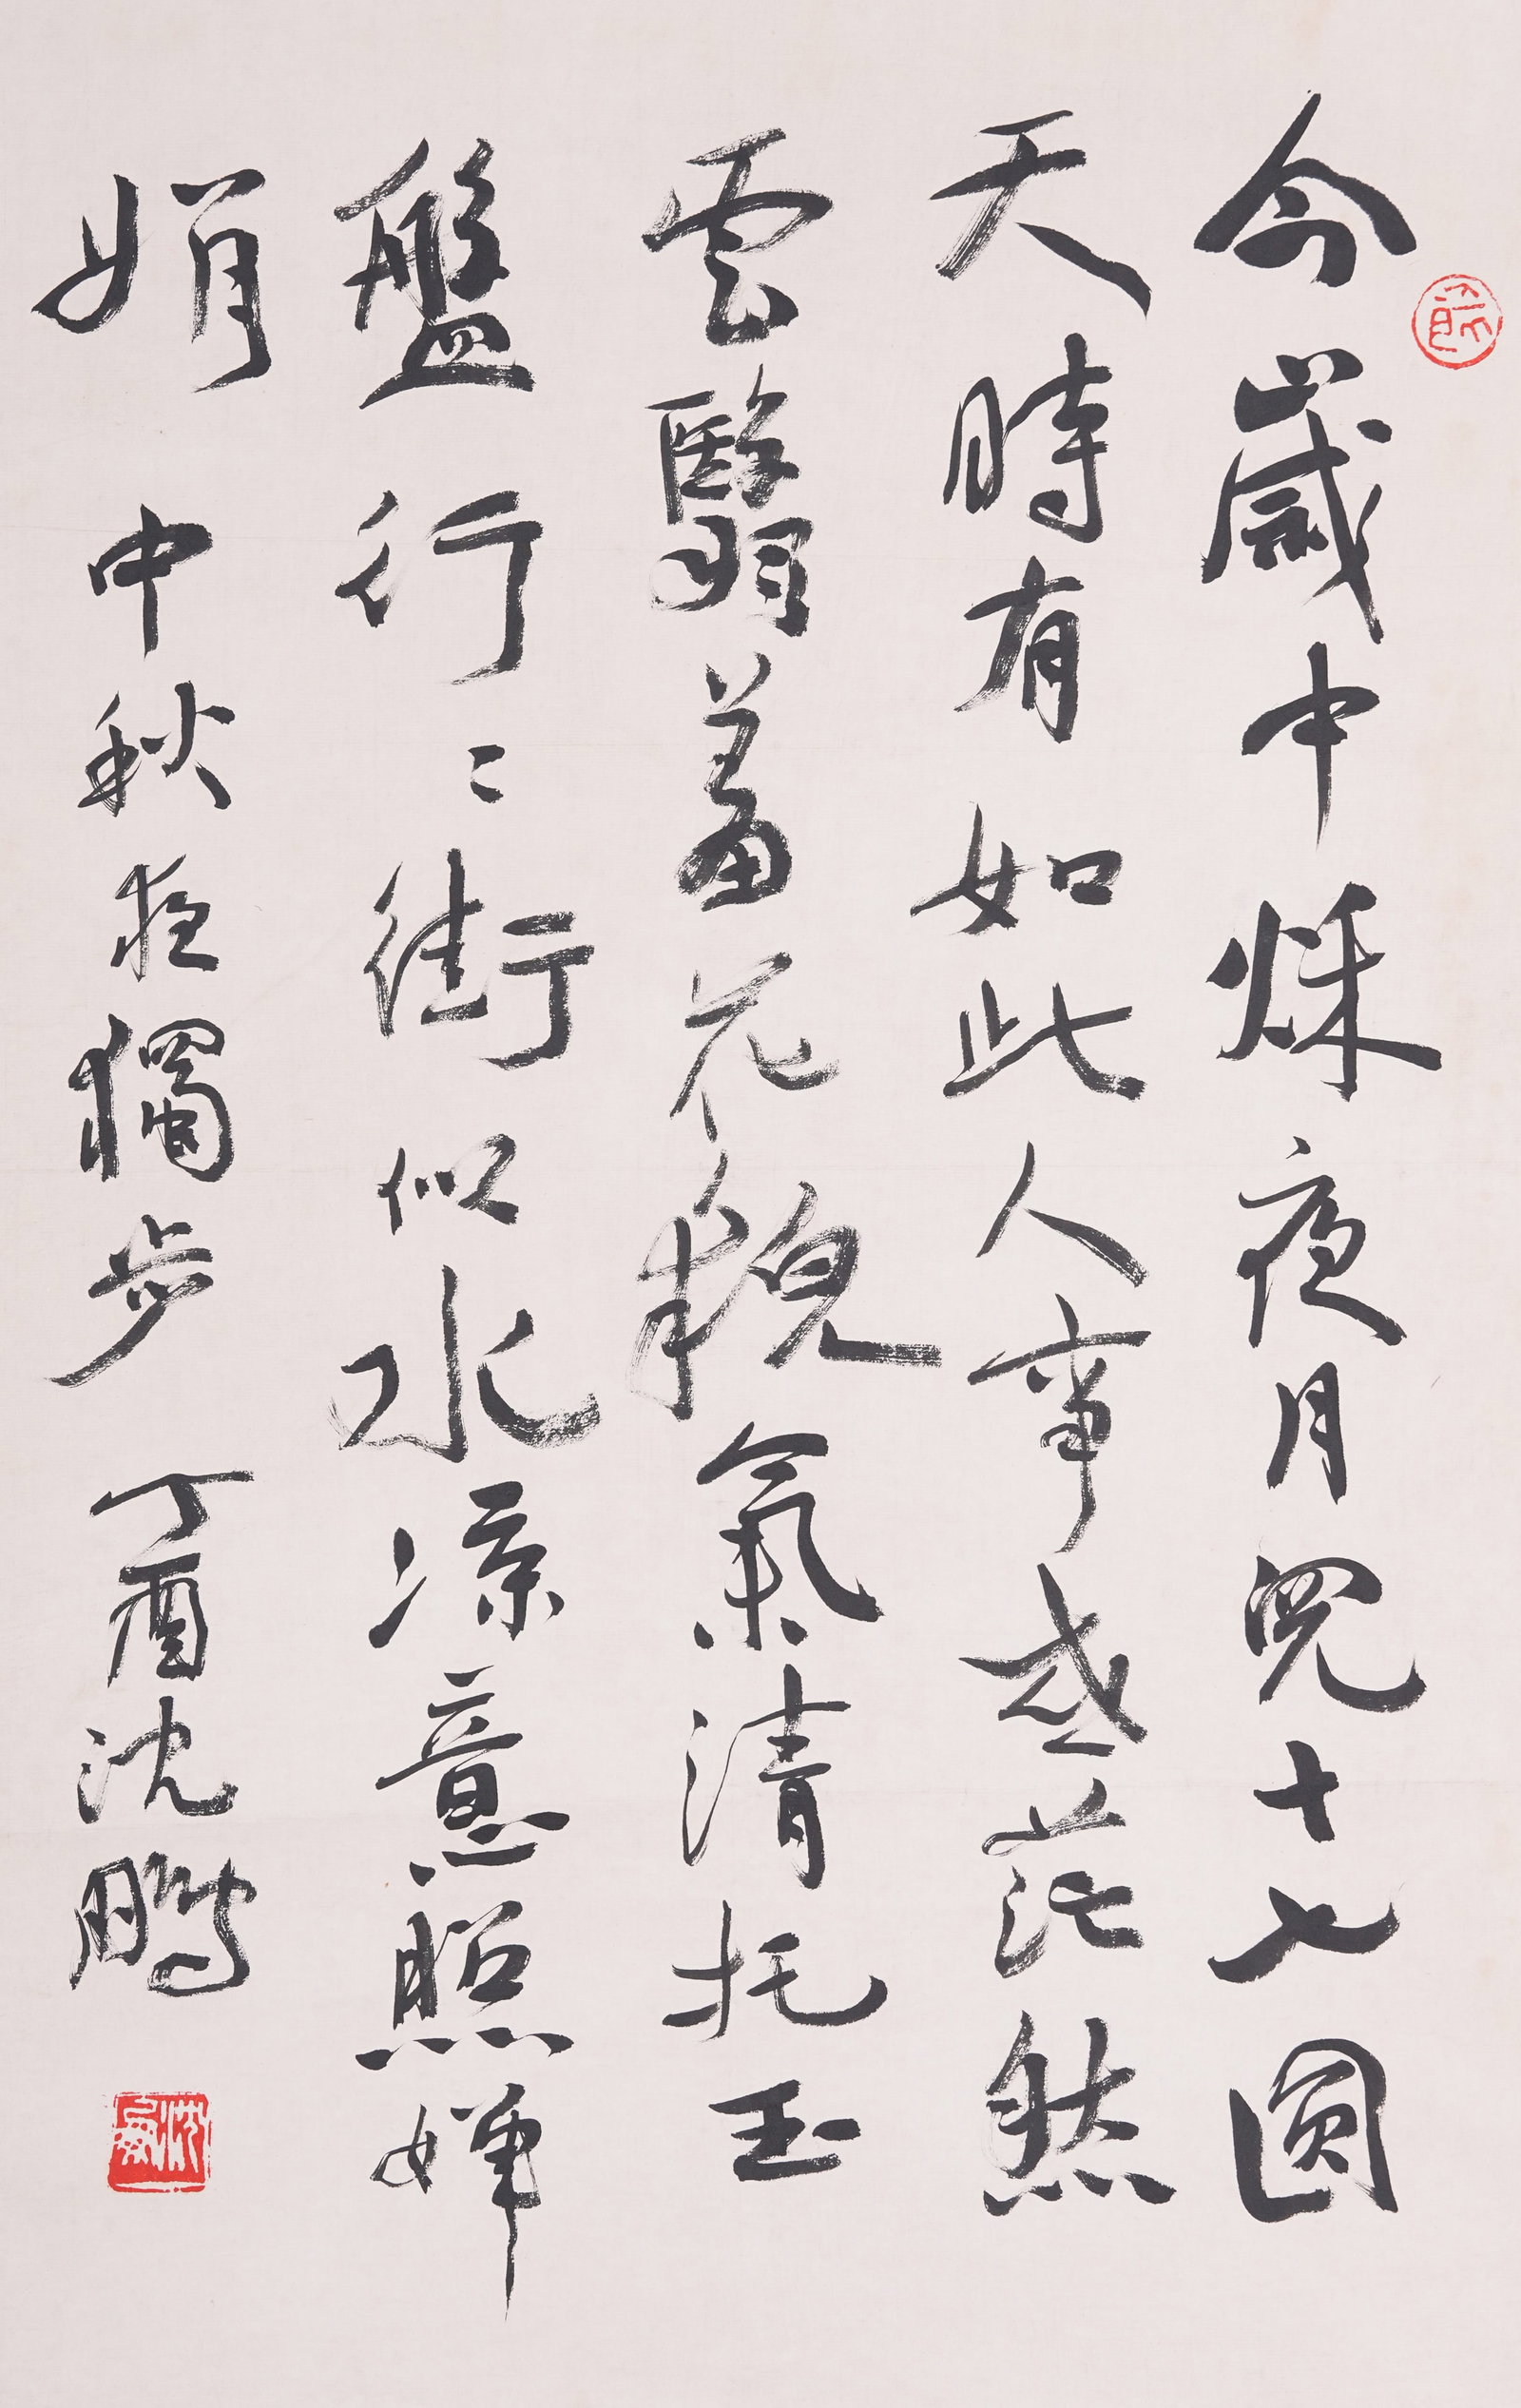 今歲中秌夜月完十七圓
天時有如此人事感茫然
雲翳羞花貌氣清托玉
盤行〻街似水凉意照嬋
娟 中秋夜獨步 丁酉沈鵬